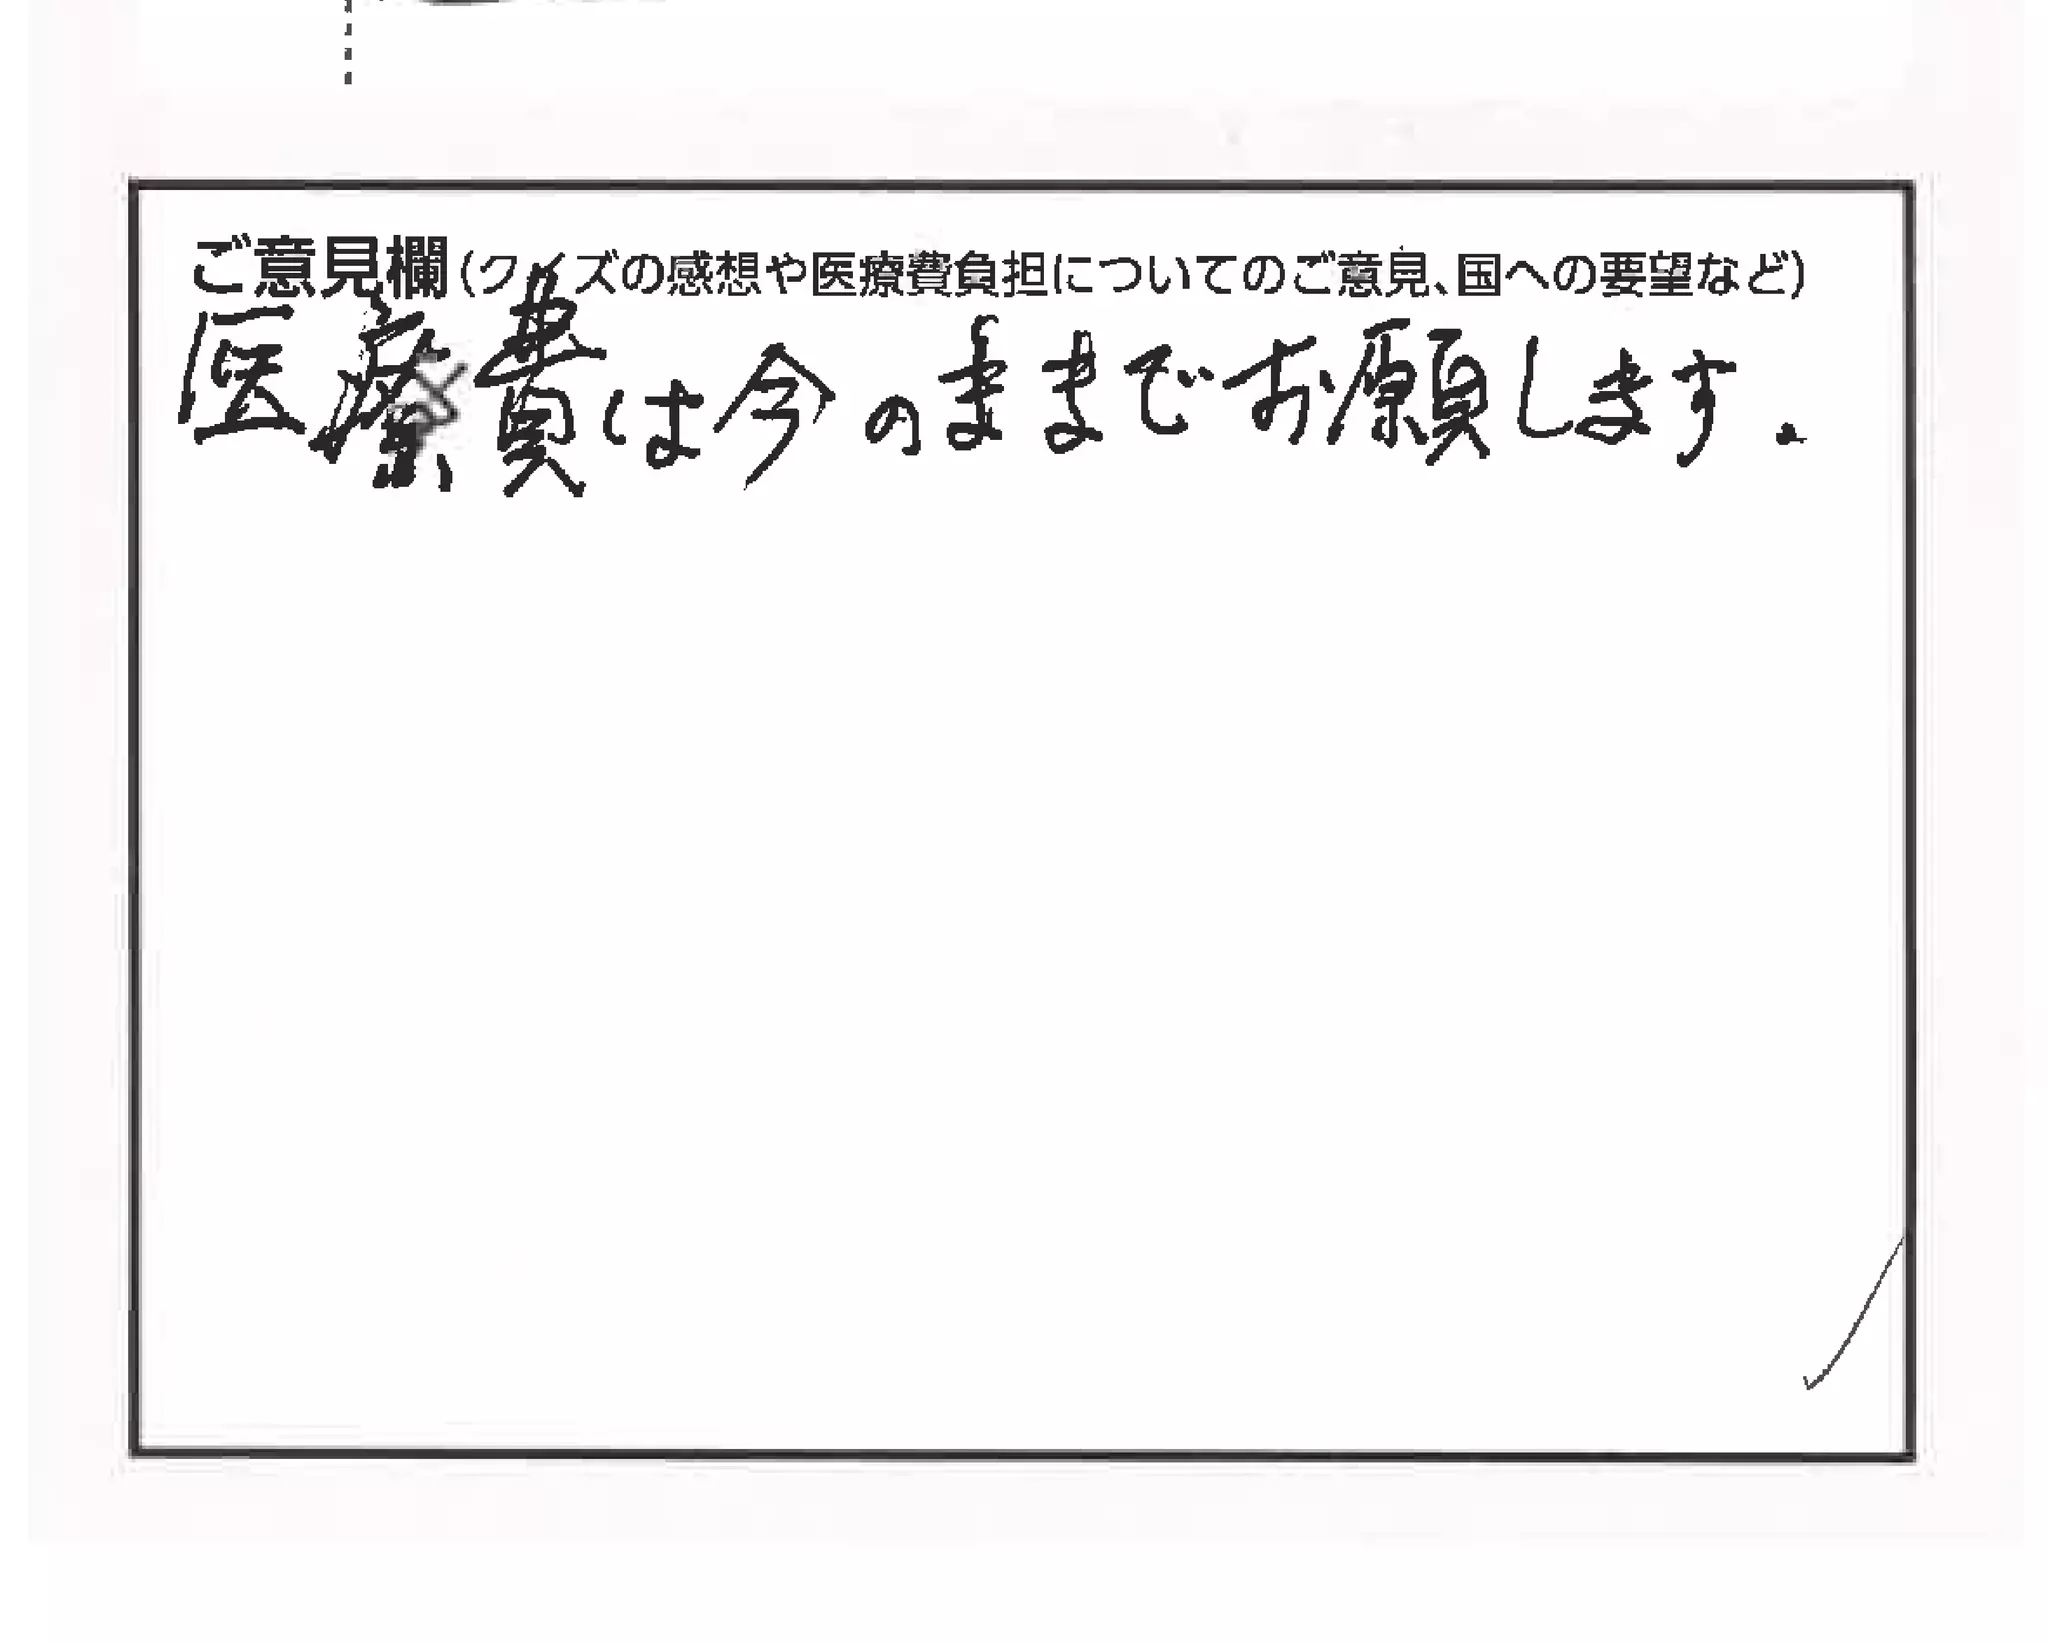 ご意見欄(クイズの感想や医療費負担についてのご意見、国への要望など)
医療費は今のままでお願します.